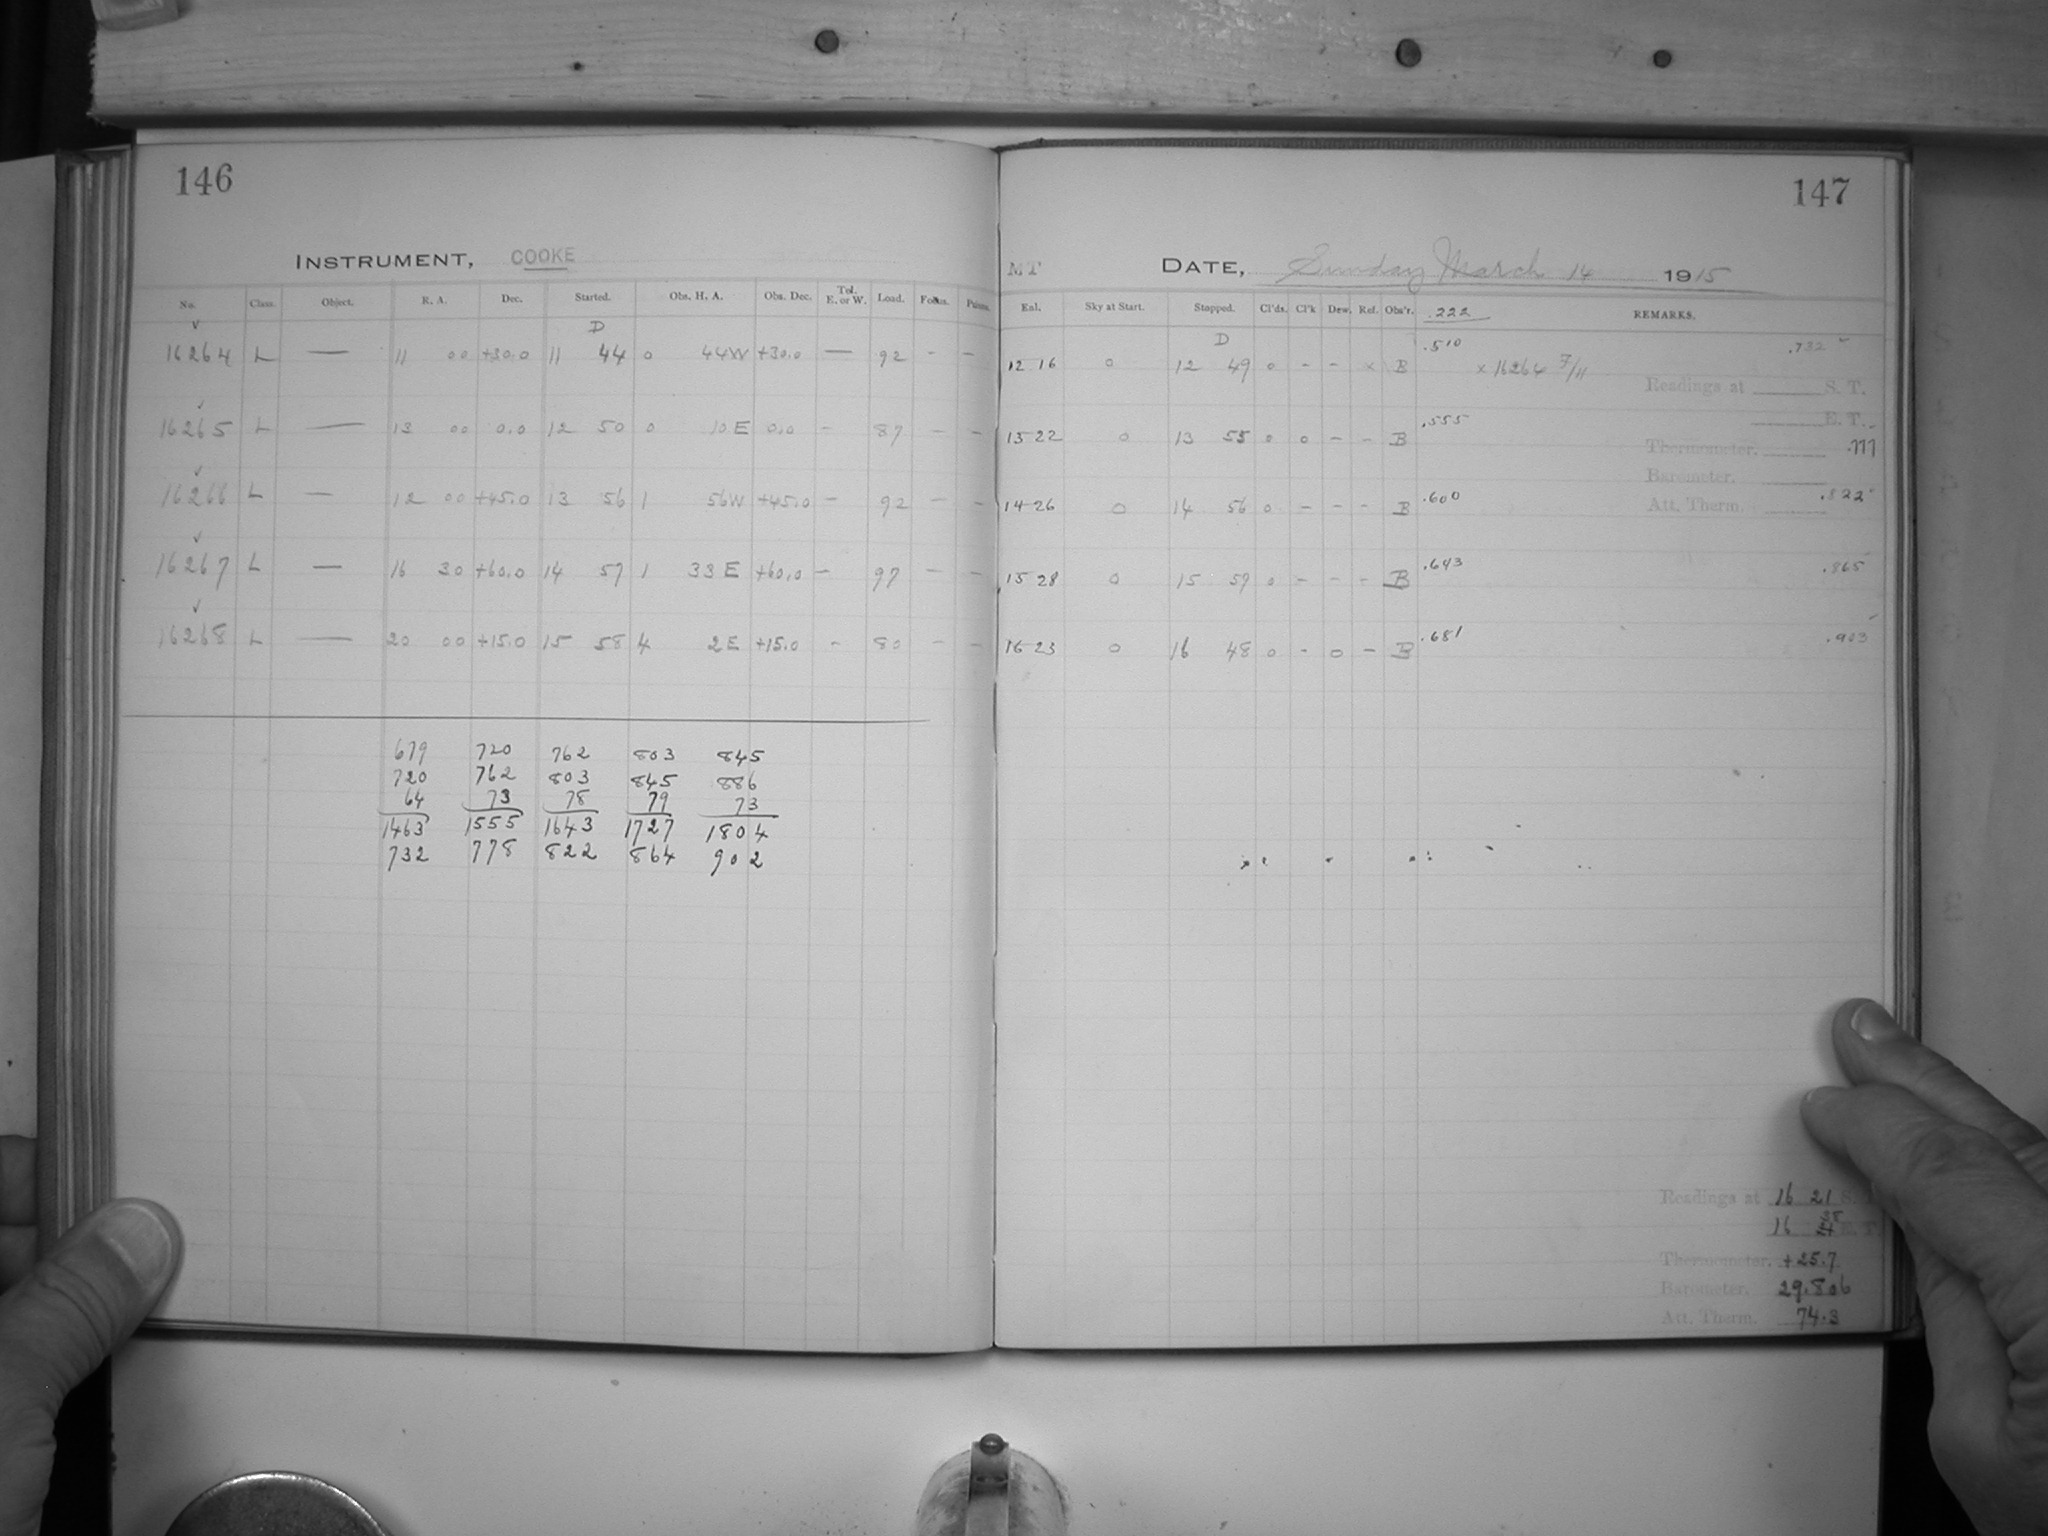 146
INSTRUMENT, COOKE
No. Class. Object. R. A. Dec. Started. Obs. H. A. Obs. Dec. Tel. E. or W. Load. Focus.
D
16264 L — 11 00 +30.0 11 44 0 44W +30.0 — 92 - -
16265 L — 13 00 0.0 12 50 0 10E 0.0 - 87 - -
16266 L — 12 00 +45.0 13 56 1 56W +45.0 - 92 - -
16267 L — 16 30 +60.0 14 57 1 33E +60.0 - 97 - -
16268 L — 20 00 +15.0 15 58 4 2E +15.0 - 80 - -
679 720 762 803 845
720 762 803 845 886
64 73 78 79 73
1463 1555 1643 1727 1804
732 778 822 864 902
147
MT DATE, Sunday March 14 1915
Enl. Sky at Start. Stopped. Cl'ds. Cl'k Dew. Ref. Obs'r. .222 REMARKS.
D .510 .732
12 16 0 12 49 0 - - x B x 16264 F/11
Readings at S. T.
.555 E. T.
13 22 0 13 55 0 0 - - B
Thermometer. .777
Barometer.
14 26 0 14 56 0 - - - B .600 .822
Att. Therm.
15 28 0 15 57 0 - - - B .643 .865
16 23 0 16 48 0 - 0 - B .681 .903
Readings at 16 21 S.
16 38 E. T.
Thermometer. +25.7
Barometer. 29.806
Att. Therm. 74.3